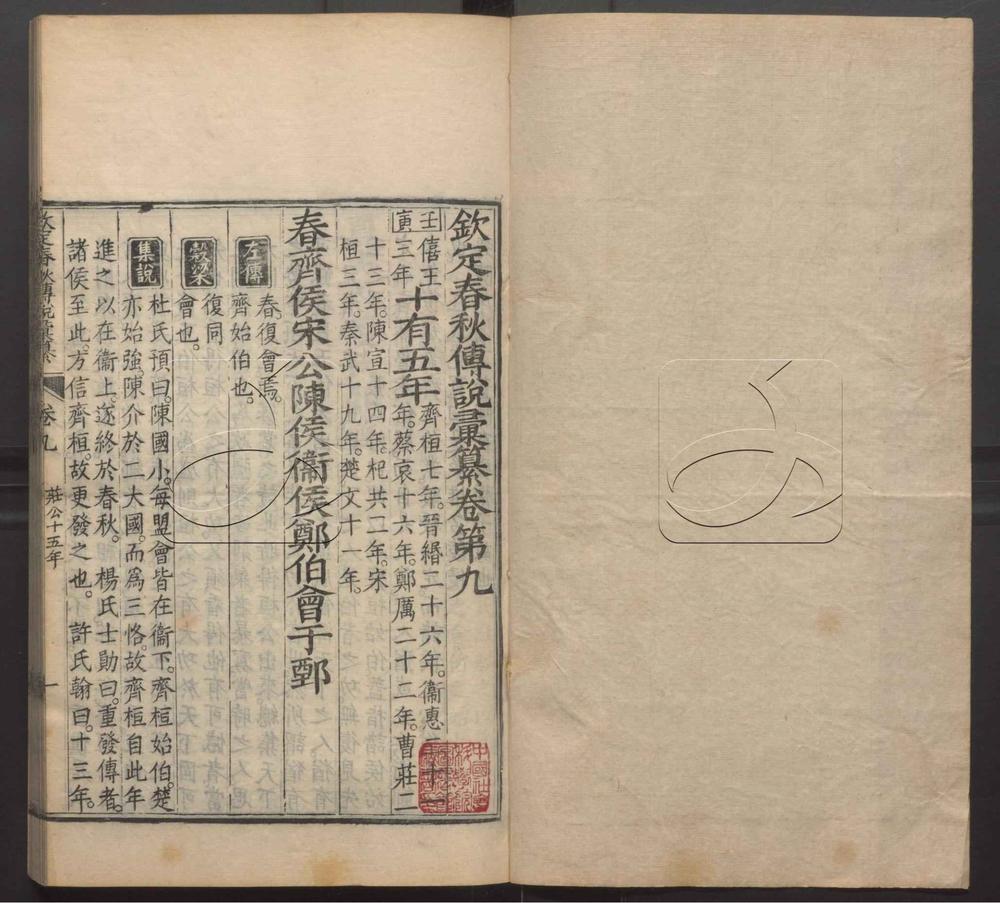 欽定春秋傳說彙纂卷第九
壬寅
僖王三年
十有五年
齊桓七年。晉緡二十六年。衞惠二十一
年。蔡哀十六年。鄭厲二十二年。曹莊二
十三年。陳宣十四年。杞共二年。宋
桓三年。秦武十九年。楚文十一年。
春齊侯宋公陳侯衞侯鄭伯會于鄄
左傳
春。復會焉。
齊始伯也。
穀梁
復同
會也。
集說
杜氏預曰。陳國小。每盟會皆在衞下。齊桓始伯。楚
亦始強。陳介於二大國。而爲三恪。故齊桓自此年
進之以在衞上。遂終於春秋。 楊氏士勛曰。重發傳者。
諸侯至此。方信齊桓。故更發之也。 許氏翰曰。十三年。
欽定春秋傳說彙纂
卷九
莊公十五年
一